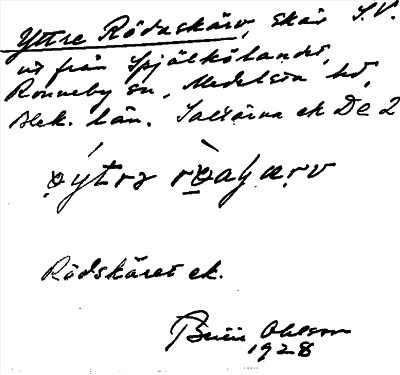 Yttre Rödaskärv, skär S.V.
ut från Spjälkölandet,
Ronneby sn, Medelsta hd,
Blek. län. Saltärna ek De 2
Rödskäret ek.
Ohlsson
1928